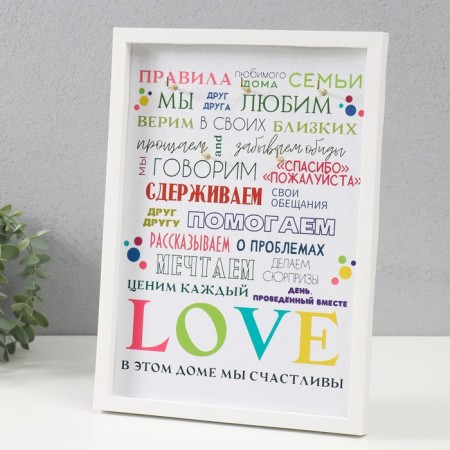 ПРАВИЛА любимого ДОМА СЕМЬИ
МЫ ДРУГ ДРУГА ЛЮБИМ
ВЕРИМ В СВОИХ БЛИЗКИХ
прощаем and забываем обиды
МЫ ГОВОРИМ «СПАСИБО» «ПОЖАЛУЙСТА»
СДЕРЖИВАЕМ СВОИ ОБЕЩАНИЯ
ДРУГ ДРУГУ ПОМОГАЕМ
РАССКАЗЫВАЕМ О ПРОБЛЕМАХ
МЕЧТАЕМ ДЕЛАЕМ СЮРПРИЗЫ
ЦЕНИМ КАЖДЫЙ ДЕНЬ, ПРОВЕДЕННЫЙ ВМЕСТЕ
LOVE
В ЭТОМ ДОМЕ МЫ СЧАСТЛИВЫ